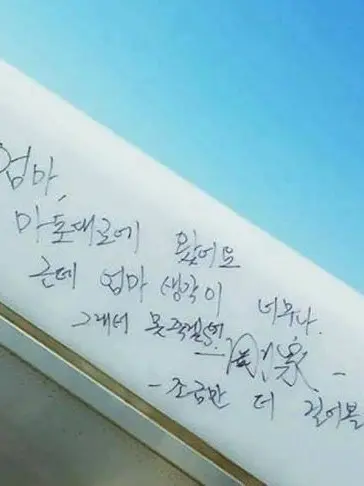 엄마,
마포대교에 왔어요
근데 엄마 생각이 너무나.
그래서 못죽겠어.
-조금만 더 걸어볼